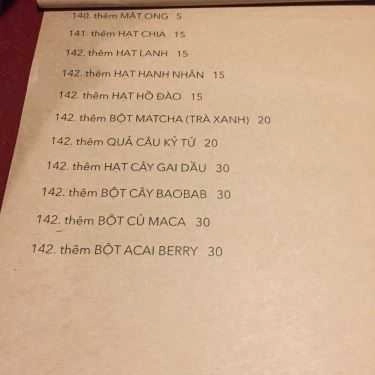 140. thêm MẬT ONG 5
141. thêm HẠT CHIA 15
142. thêm HẠT LANH 15
142. thêm HẠT HẠNH NHÂN 15
142. thêm HẠT HỒ ĐÀO 15
142. thêm BỘT MATCHA (TRÀ XANH) 20
142. thêm QUẢ CÂU KỶ TỬ 20
142. thêm HẠT CÂY GAI DẦU 30
142. thêm BỘT CÂY BAOBAB 30
142. thêm BỘT CỦ MACA 30
142. thêm BỘT ACAI BERRY 30